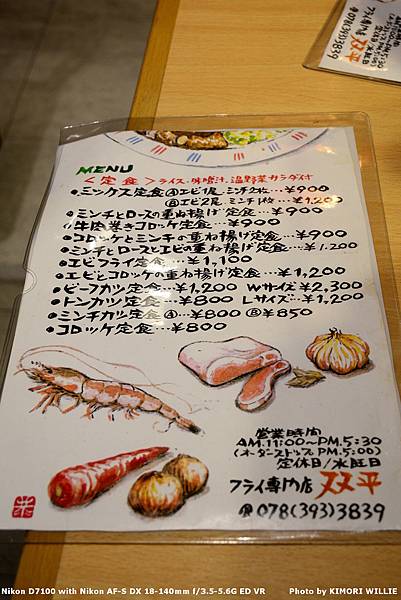 MENU
＜定食＞ライス、味噌汁、温野菜サラダ付
●ミックス定食 Ⓐエビ1尾 ミンチ2枚…￥900
Ⓑエビ2尾 ミンチ1枚…￥1,200
●ミンチとロースの重ね揚げ定食…￥900
●牛肉巻きコロッケ定食…￥900
●コロッケとミンチの重ね揚げ定食…￥900
●ミンチとロースとエビの重ね揚げ定食…￥1,200
●エビフライ定食…￥1,100
●エビとコロッケの重ね揚げ定食…￥1,200
●ビーフカツ定食…￥1,200 Wサイズ￥2,300
●トンカツ定食…￥800 Lサイズ…￥1,200
●ミンチカツ定食Ⓐ…￥800 Ⓑ￥850
●コロッケ定食…￥800
営業時間
AM.11:00〜PM.5:30
(オーダーストップPM.5:00)
定休日/水曜日
フライ専門店 双平
☎078(393)3839
フライ専門店 双平
☎078(393)3839
Nikon D7100 with Nikon AF-S DX 18-140mm f/3.5-5.6G ED VR
Photo by KIMORI WILLIE